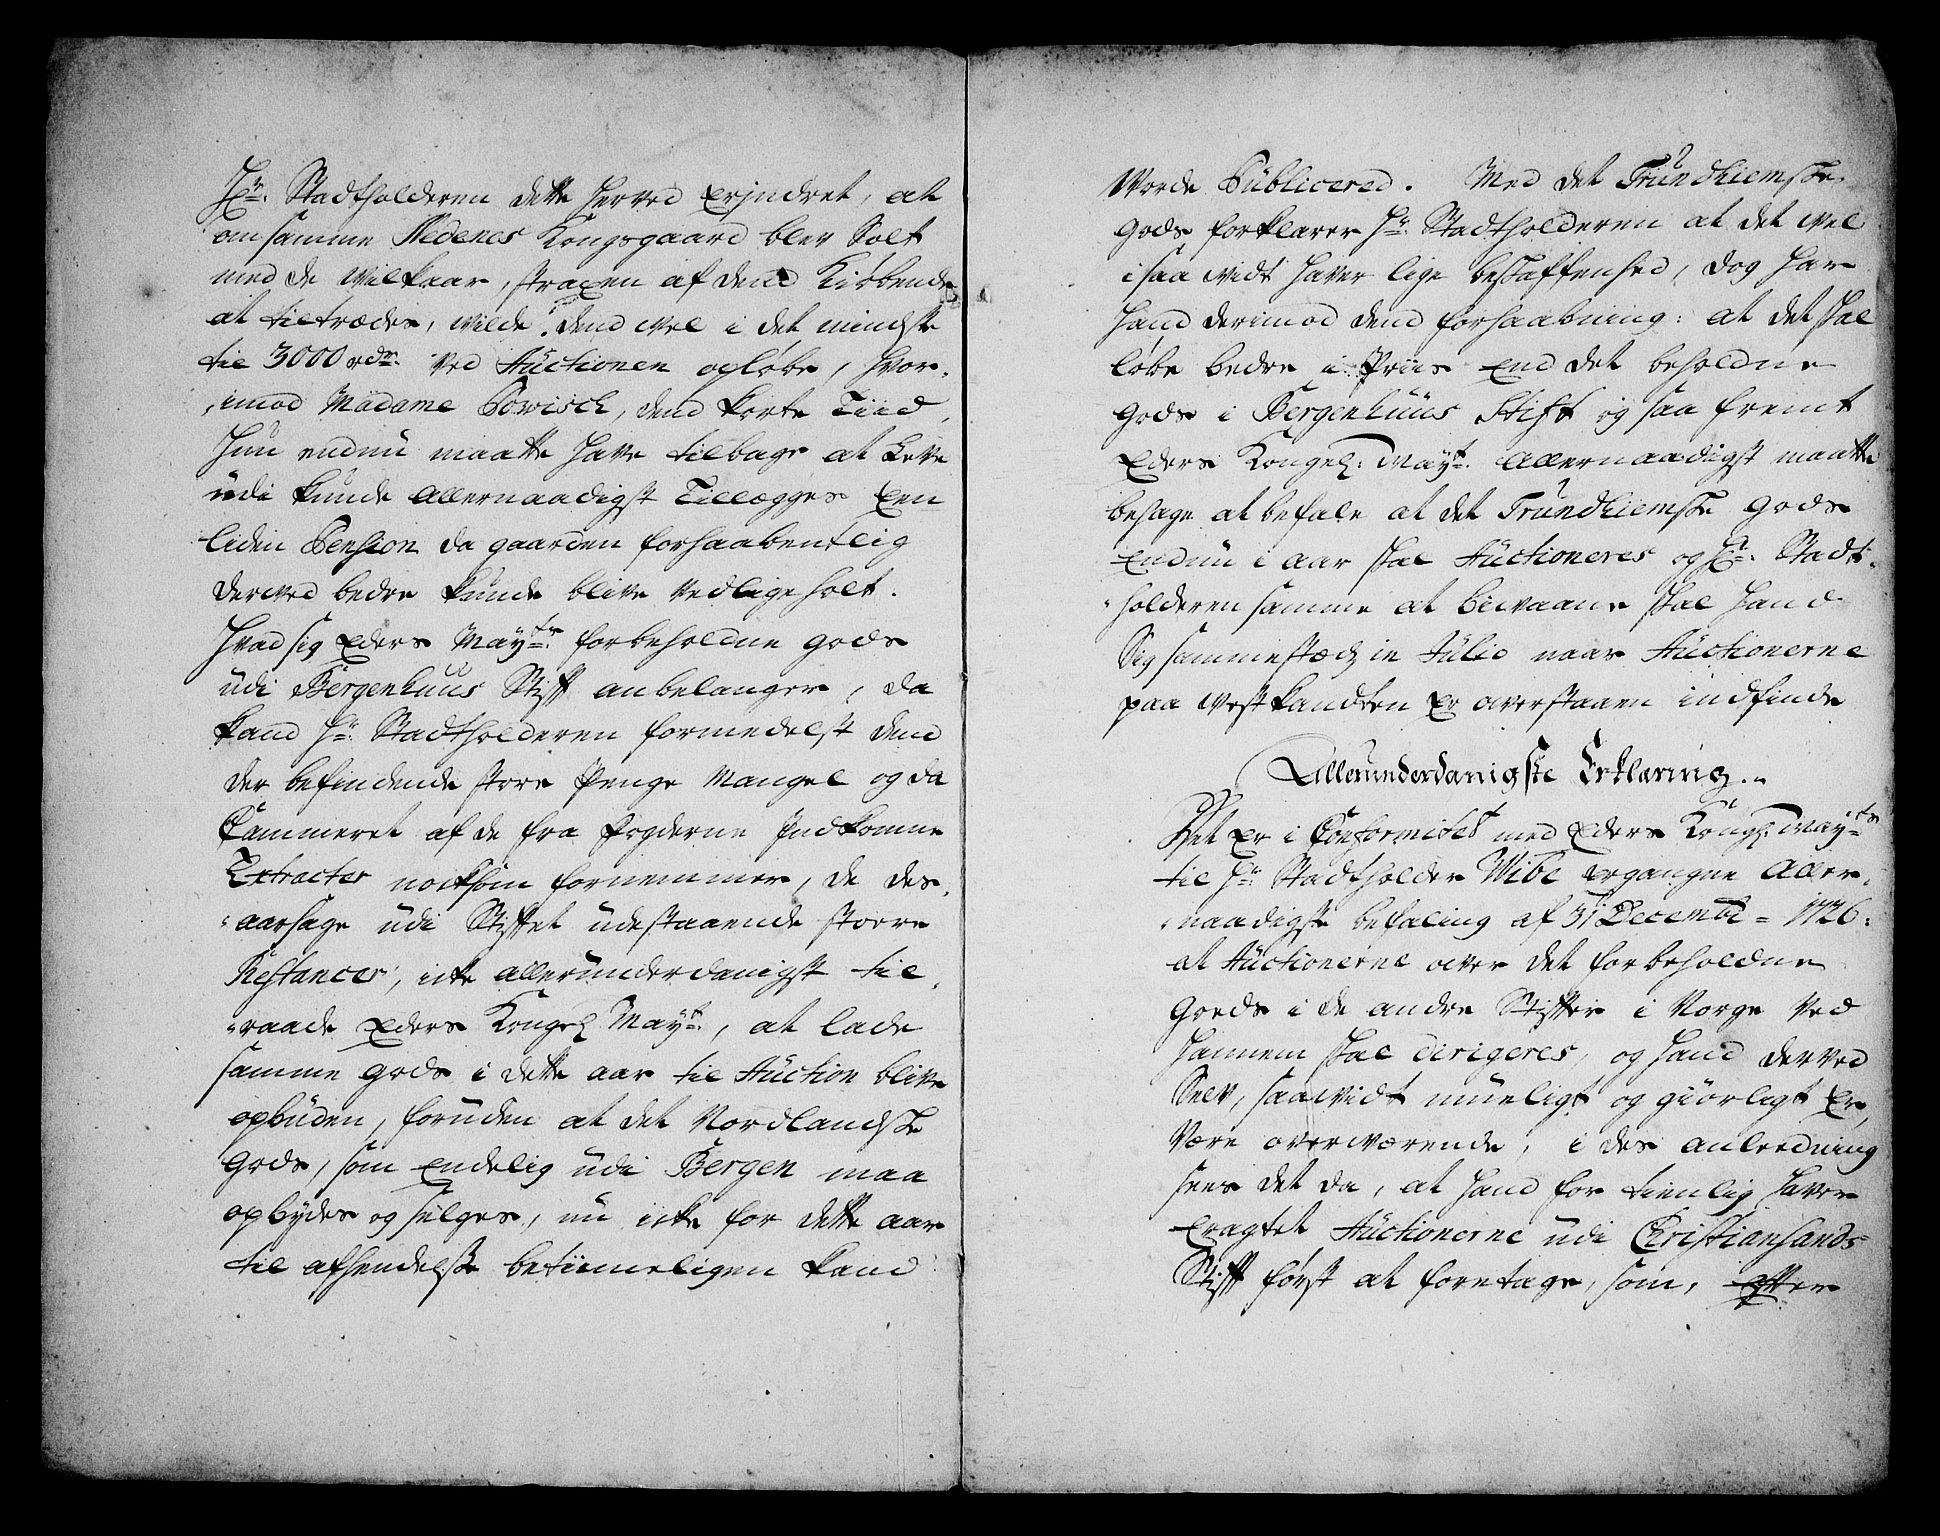 Hr. Stadtholderen dette herved Erindret, at
om samme Nedenes Kongsgaard blev Solt
med de Vilkaar, straxen af dend Kiøbende
at tiltrædes, vilde dend vel i det mindste
til 3000 rdr. ved Auctionen opløbe, hvor-
imod Madame Powisch, dend korte Tiid,
Hun endnu maatte have tilbage at Leve
udi kunde Allernaadigst Tillægges Een
liden Pension da gaarden forhaabentlig
derved bedre kunde blive vedlige holt.
Hvad sig Eders Mayts. forbeholdne gods
udi Bergenhuus Stift anbelanger, da
kand Hr. Stadtholderen formedelst dend
der befindende store Penge Mangel og da
Cammeret af de fra Fogderne Indkomne
Extracter noksom fornemmer, de des-
aarsage udi Stiftet udestaaende store
Restancer, icke allerunderdanigst til-
raade Eders Kongel. Mayt., at lade
samme gods i dette aar til Auction blive
opbuden, foruden at det Nordlandske
gods, som Endelig udi Bergen maa
opbydes og sælges, nu icke for dette aar
til afhendelse betiimeligen kand
Worde Publicered. Med det Trundhiemske
gods forklarer Hr. Stadtholderen at det vel
i saa vidt haver lige beskaffenhed, dog har
hand derimod dend forhaabning: at det skal
løbe bedre i Priis End det beholdne
gods i Bergenhuus Stift og saa fremt
Eders Kongel: Mayt. Allernaadigst maatte
behage at befale at det Trundhiemske gods
Endnu i aar skal Auctioneres og Hr. Stadt-
holderen samme at bievaane skal hand
Sig sammestædz in Julio naar Auctionerne
paa Vestkandten Er overstaaen indfinde
Allerunderdanigste Erklæring..
Det Er i Conformitet med Eders Kongl. Mayts
til Hr. Stadtholder Wibe Ergangne Aller-
naadigste befaling af 31 Decembr = 1726.
at Auctionerne over det forbeholdne
Goeds i de andre Stifter i Norge ved
hannem skal dirigeres, og hand derved
Selv, saavidt mueligt og giørligt Er,
Være overværende, i des anleedning
sees det da, at hand for tienlig haver
Eragtet Auctionerne udi Christiansands
Stift først at foretage, som, efter